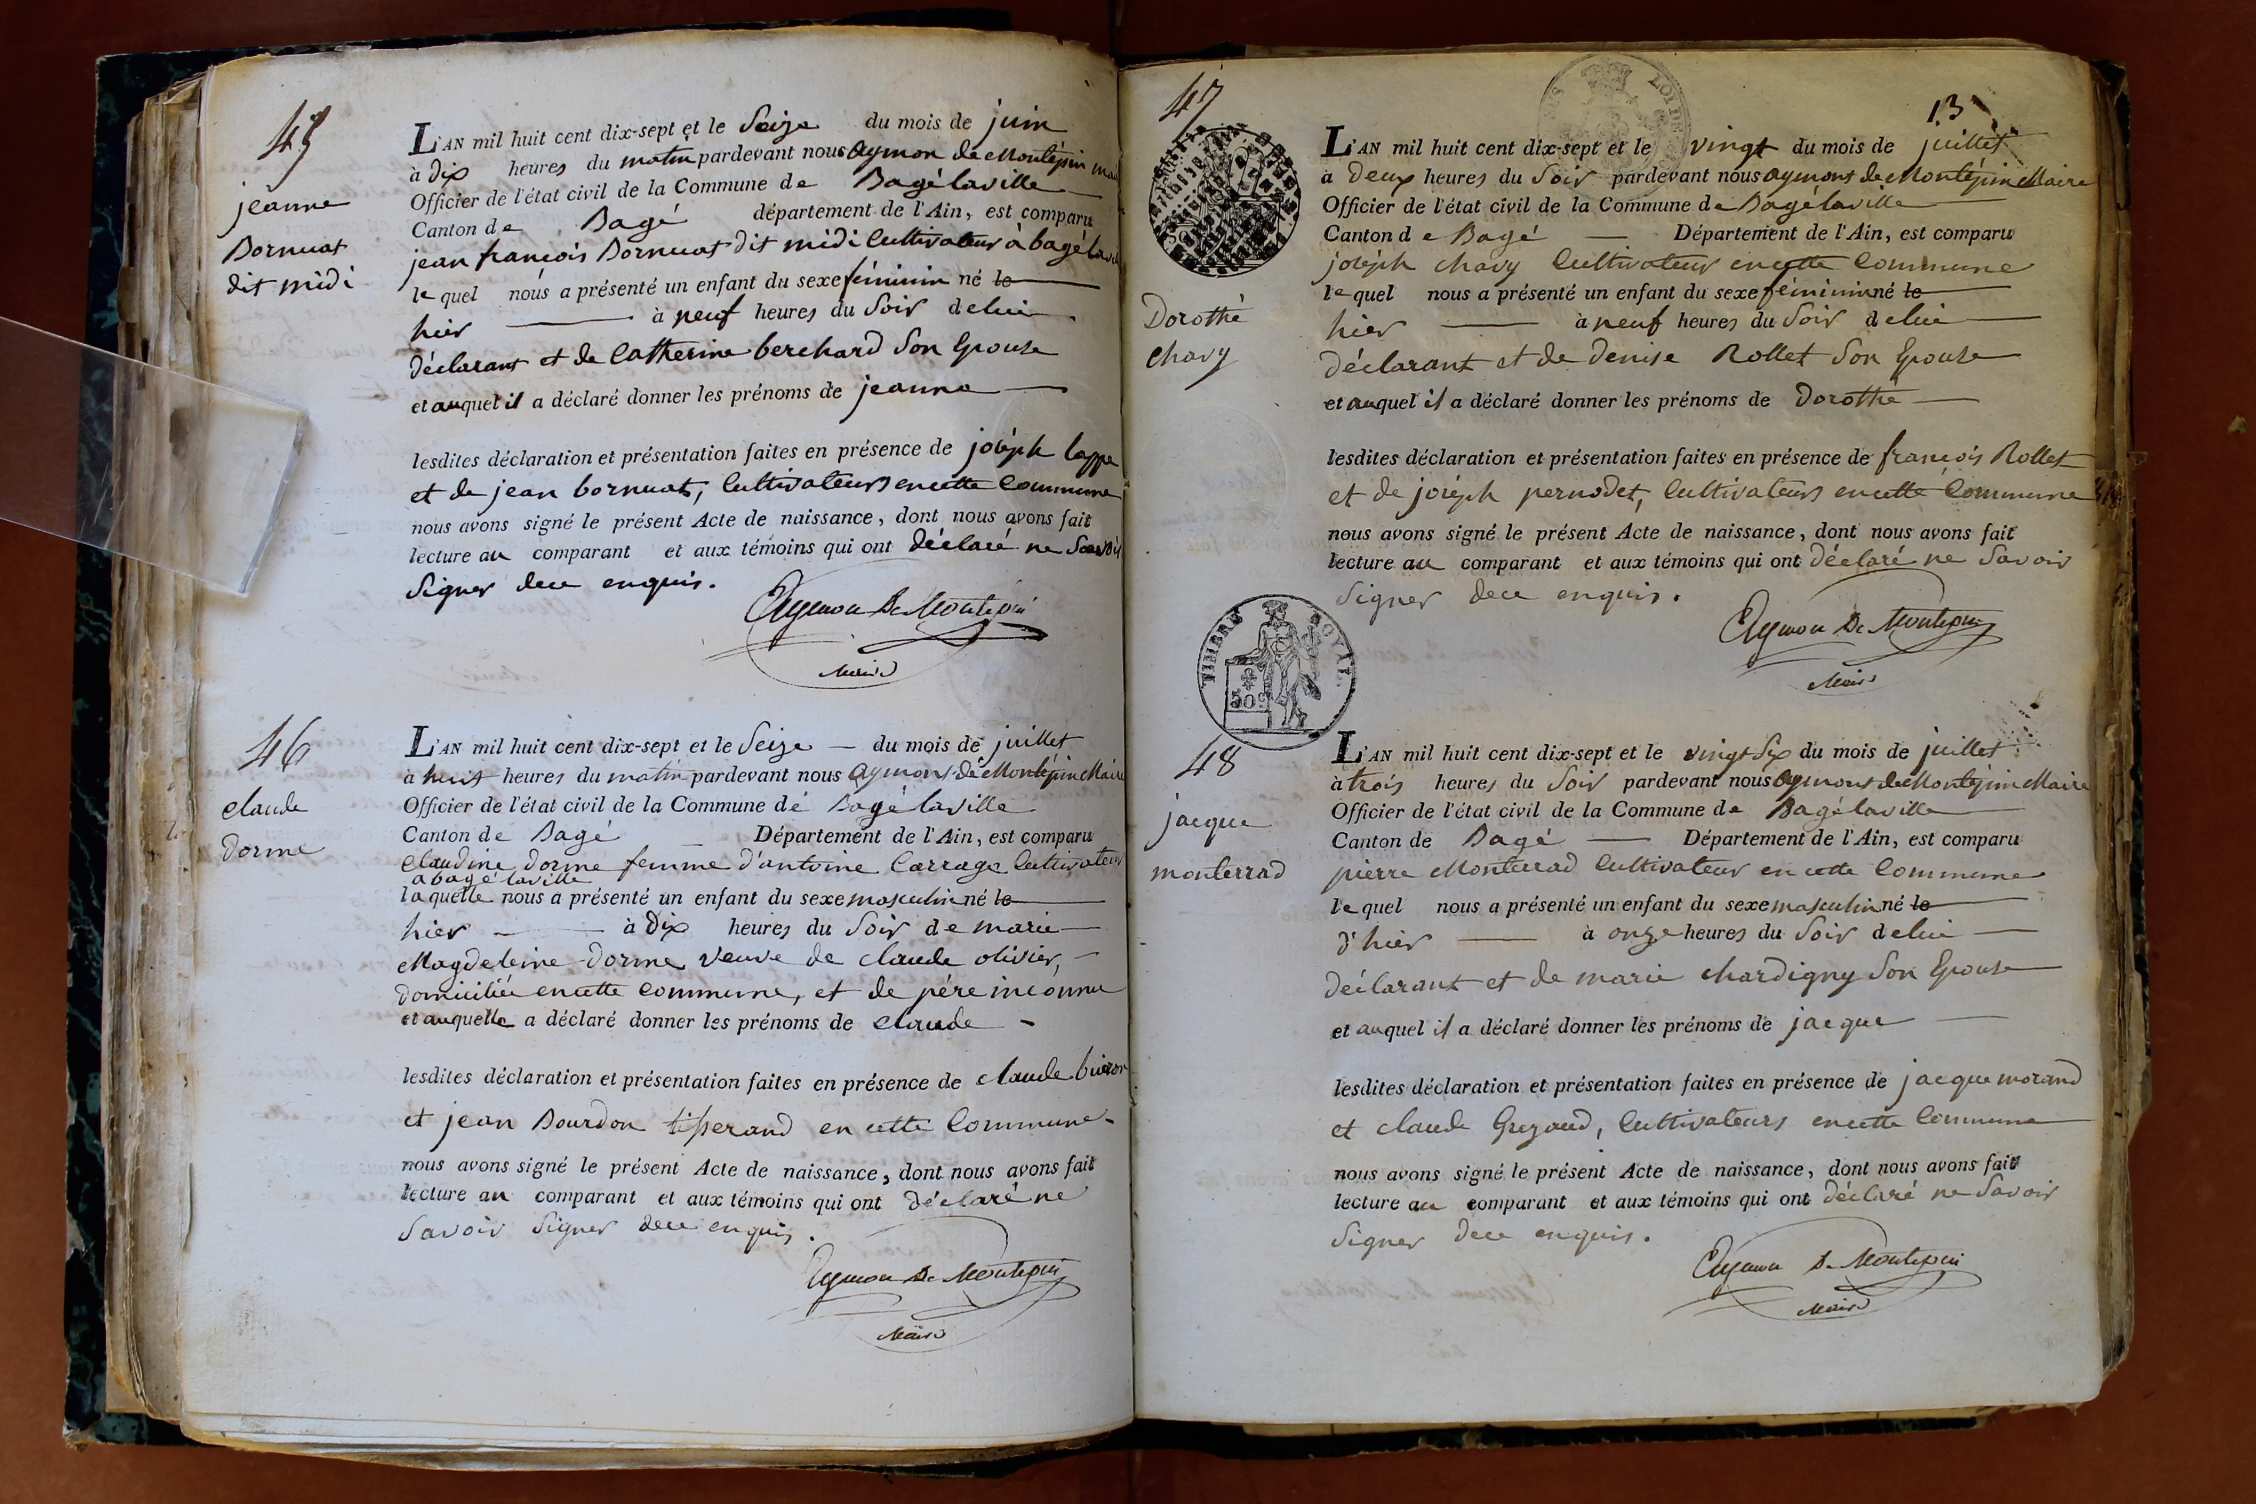 45
jeanne
Bornuat
dit midi
L'AN mil huit cent dix-sept et le Seize du mois de juin
à dix heures du matin pardevant nous Aymon de Montépin
Officier de l'état civil de la Commune de Bagé laville
Canton de Bagé département de l'Ain, est comparu
jean françois Bornuat dit midi Cultivateur à bagé
le quel nous a présenté un enfant du sexe féminin né le
hier à neuf heures du Soir de lui
déclarant et de Catherine berchard Son Epouse
et auquel il a déclaré donner les prénoms de jeanne
lesdites déclaration et présentation faites en présence de joséph lappe
et de jean bornuat, Cultivateurs en cette Commune
nous avons signé le présent Acte de naissance, dont nous avons fait
lecture au comparant et aux témoins qui ont déclaré ne Savoir
Signer de ce enquis.
Aymon De Montépin
Maire
46
claude
dorme
L'AN mil huit cent dix-sept et le Seize du mois de juillet
à huit heures du matin pardevant nous Aymons de Montépin Maire
Officier de l'état civil de la Commune de Bagé laville
Canton de Bagé Département de l'Ain, est comparu
Claudine dorme femme d'antoine Carrage Cultivateur
a bagé laville
la quelle nous a présenté un enfant du sexe masculin né le
hier à dix heures du Soir de marie
Magdeleine dorme, veuve de claude olivier,
domiciliée en cette commune, et de pére inconnu
et auquelle a déclaré donner les prénoms de claude
lesdites déclaration et présentation faites en présence de claude
et jean Bourdon tisserand en cette Commune
nous avons signé le présent Acte de naissance, dont nous avons fait
lecture au comparant et aux témoins qui ont déclaré ne
Savoir Signer de ce enquis.
Aymon De Montépin
Maire
47
13
Dorothé
chavy
L'AN mil huit cent dix-sept et le vingt du mois de juillet
à deux heures du Soir pardevant nous aymons de Montépin Maire
Officier de l'état civil de la Commune de Bagé laville
Canton de Bagé Département de l'Ain, est comparu
joséph chavy Cultivateur en cette Commune
le quel nous a présenté un enfant du sexe féminin né le
hier à neuf heures du Soir de lui
déclarant et de denise Rollet Son Epouse
et auquel il a déclaré donner les prénoms de Dorothé
lesdites déclaration et présentation faites en présence de françois Rollet
et de joséph pernodet, Cultivateurs en cette Commune
nous avons signé le présent Acte de naissance, dont nous avons fait
lecture au comparant et aux témoins qui ont déclaré ne Savoir
Signer de ce enquis.
Aymon De Montépin
Maire
TIMBRE ROYAL
50c
48
jacque
monterrad
L'AN mil huit cent dix-sept et le vingt Six du mois de juillet
à trois heures du Soir pardevant nous Aymons de Montépin Maire
Officier de l'état civil de la Commune de Bagé laville
Canton de Bagé Département de l'Ain, est comparu
pierre Monterrad Cultivateur en cette Commune
le quel nous a présenté un enfant du sexe masculin né le
d'hier à onze heures du Soir de lui
déclarant et de marie chardigny Son Epouse
et auquel il a déclaré donner les prénoms de jacque
lesdites déclaration et présentation faites en présence de jacque morand
et claude Grezaud, Cultivateurs en cette Commune
nous avons signé le présent Acte de naissance, dont nous avons fait
lecture au comparant et aux témoins qui ont déclaré ne Savoir
Signer de ce enquis.
Aymon De Montépin
Maire